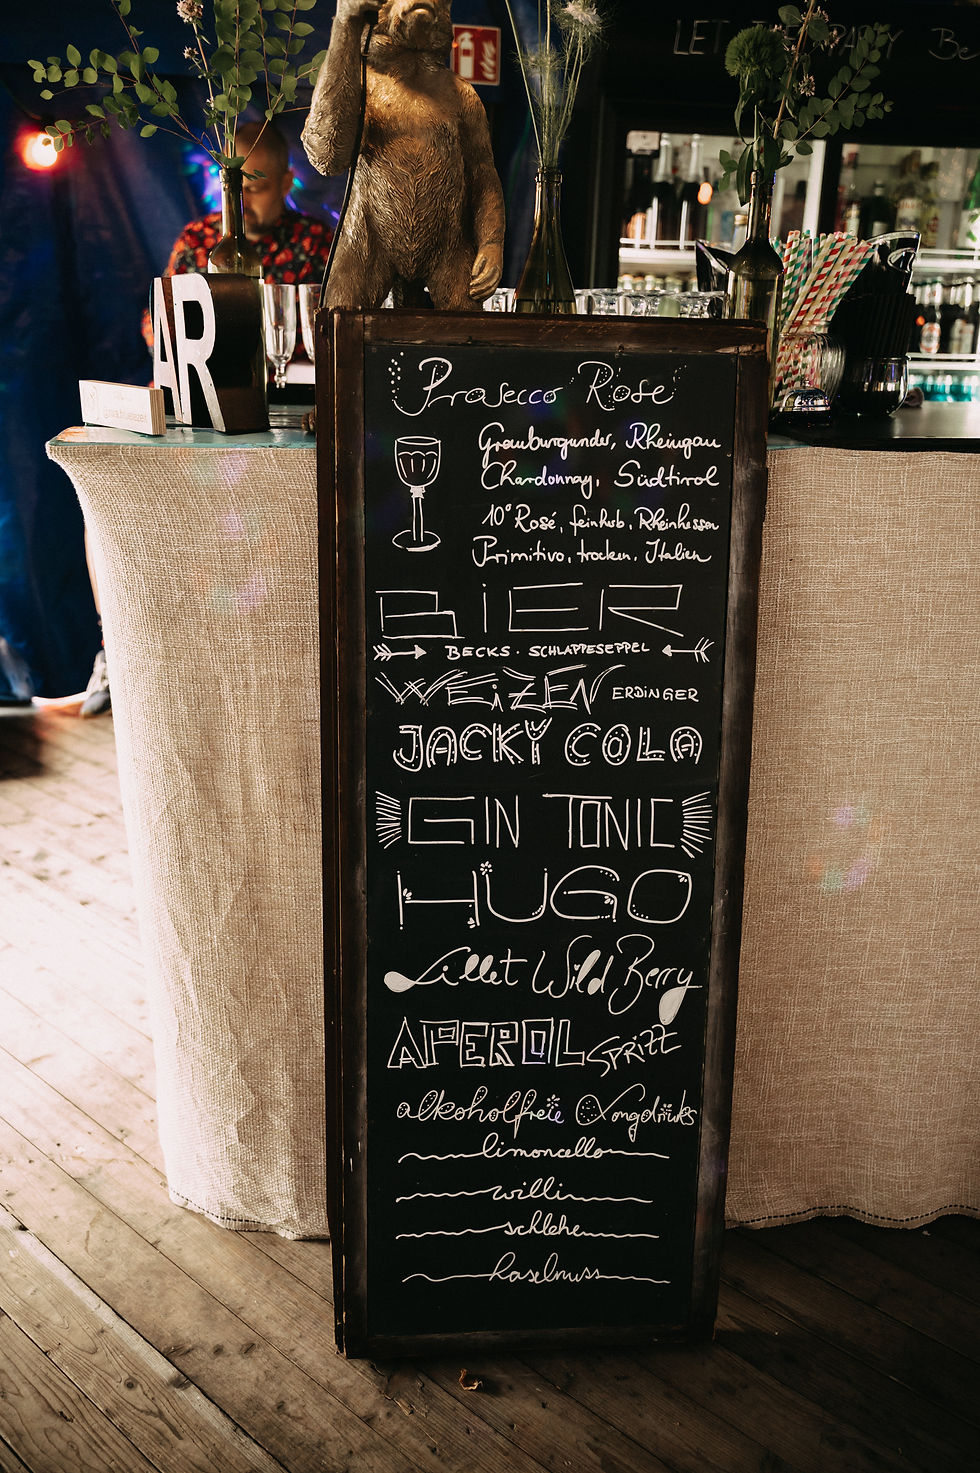 LET THE PARTY Be
AR
Prosecco Rosé
Grauburgunder, Rheingau
Chardonnay, Südtirol
10° Rosé, feinherb, Rheinhessen
Primitivo, trocken, Italien
BIER
BECKS · SCHLAPPESEPPEL
WEIZEN ERDINGER
JACKY COLA
GIN TONIC
HUGO
Lillet Wild Berry
APEROL SPRIZZ
alkoholfreie Longdrinks
limoncello
willi
schlehe
haselnuss